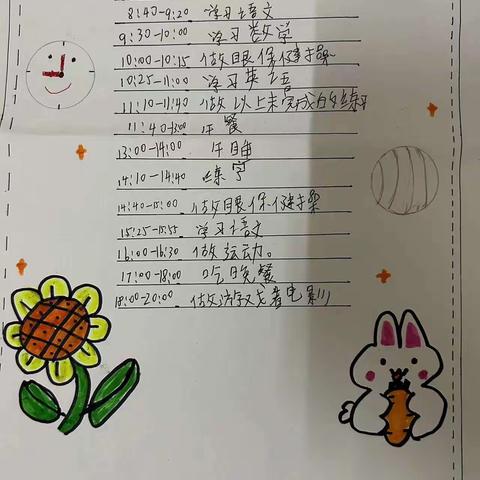 8:40-9:20 学习语文
9:30-10:00 学习数学
10:00-10:15 做眼保健操
10:25-11:00 学习英语
11:10-11:40 做以上未完成的练习
11:40-13:00 午餐
13:00-14:00 午睡
14:10-14:40 练字
14:40-15:00 做眼保健操
15:25-15:55 学习语文
16:00-16:30 做运动。
17:00-18:00 吃晚餐
18:00-20:00 做游戏或看电影